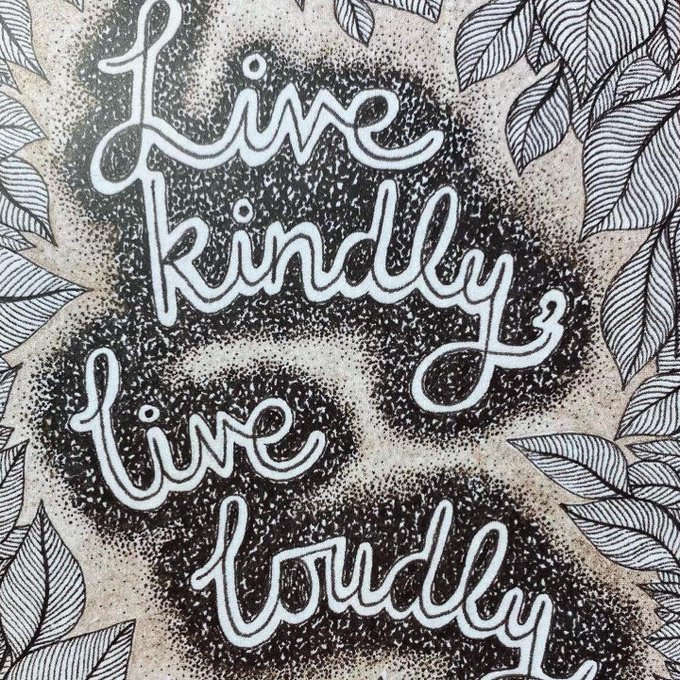 Live
kindly,
live
loudly